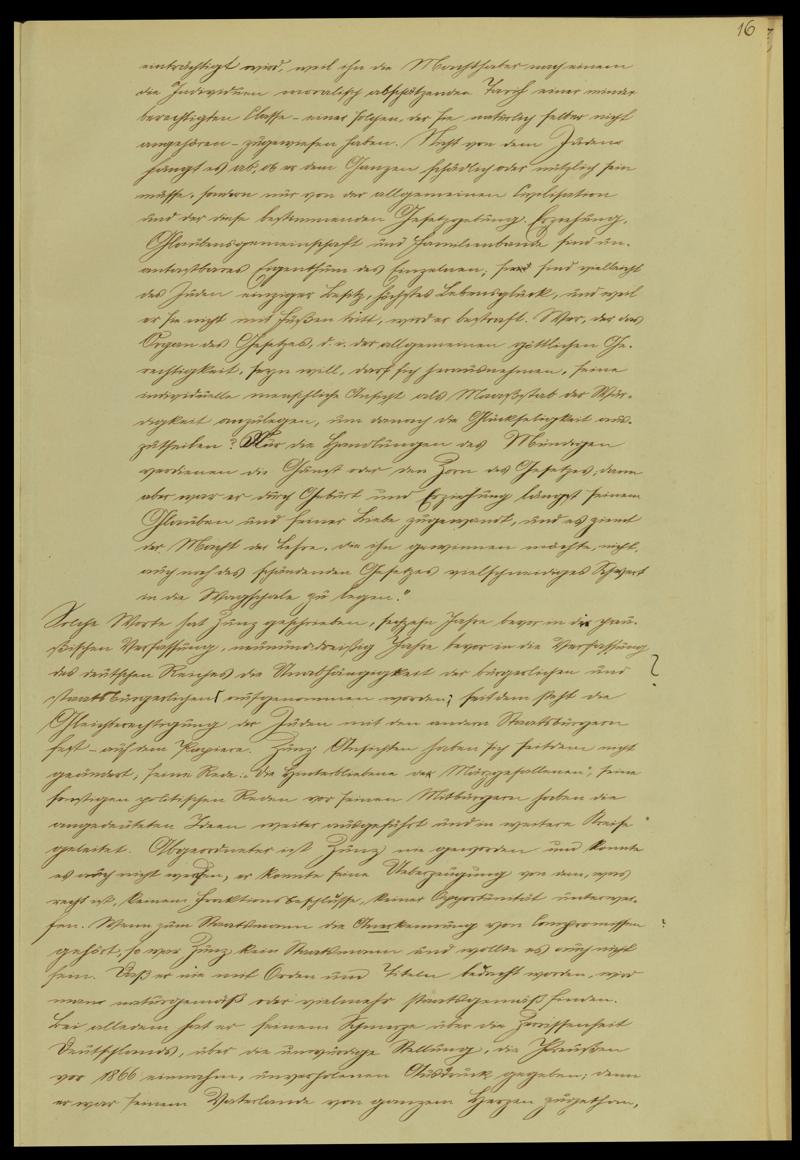 16
einträchtigt wird, weil ihn die Machthaber nach einem
die Individuen moralisch abschätzenden Tarif einer minder
berechtigten Classe – einer solchen, der sie natürlich selber nicht
angehören – zugewiesen haben. Nicht von dem Juden
hängt es ab, ob er dem Ganzen schädlich oder nützlich sein
müsse, sondern nur von der allgemeinen Civilisation
und der diese bestimmenden Gesetzgebung. Erziehung,
Glaubensgemeinschaft und Familienbande sind un-
antastbares Eigenthum des Einzelnen; sie sind vielleicht
des Juden einziger Besitz, höchstes Lebensglück, und weil
er sie nicht mit Füßen tritt, wird er bestraft. Wer, der das
Organ des Gesetzes, d. i. der allgemeinen göttlichen Ge-
rechtigkeit, seyn will, darf sich herausnehmen, seine
individuelle menschliche Ansicht als Maaßstab der Wür-
digkeit anzulegen, um danach die Glückseligkeit aus-
zutheilen? Nur die Handlungen des Mündigen
verdienen die Gunst oder den Zorn des Gesetzes, dann
aber war er durch Geburt und Erziehung längst seinem
Glauben und seiner Liebe zugewandt, und es ziemt
der Macht der Lehre, die ihn gewinnen möchte, nicht,
auch noch des schändenden Gesetzes vielschneidiges Schwert
in die Wagschale zu legen."
Solche Worte hat Zunz geschrieben, sechzehn Jahre bevor in die preu-
ßischen Verfassung, neununddreißig Jahre bevor in die Verfassung
des deutschen Reiches die Unabhängigkeit der bürgerlichen und ?
staatsbürgerlichen [ aufgenommen worden; seitdem steht die
Gleichberechtigung der Juden mit den andern Staatsbürgern
fest – auf dem Papiere. Zunz' Ansichten haben sich seitdem nicht
geändert, seine Rede: „Die Hinterbliebene der Märzgefallenen", seine
sonstigen politischen Reden vor seinen Mitbürgern haben die
angedeuteten Ideen weiter ausgeführt und in weitere Kreise
geleitet. Abgeordneter ist Zunz nie geworden und konnte
es auch nicht werden, er konnte seine Ueberzeugung von dem, was
recht ist, keinem Fraktionsbeschlusse, keiner Opportunität unterwer-
fen. Wenn zum Staatsmann die Anerkennung von Compromissen
gehört, so war Zunz kein Staatsmann und wollte es auch nicht
sein. Daß er nie mit Orden und Titeln bedacht worden, wird
man naturgemäß oder vielmehr staatsgemäß finden.
Bei alledem hat er seinem Schmerze über die Zerrissenheit
Deutschlands, über die unwürdige Stellung, die Preußen
vor 1866 einnahm, unverholenen Ausdruck gegeben; denn
er war seinem Vaterlande von ganzem Herzen zugethan,